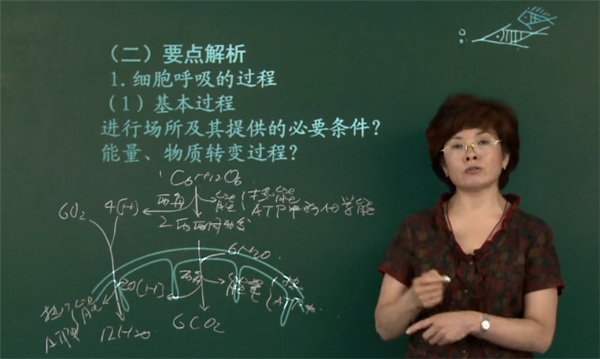 （二）要点解析
1.细胞呼吸的过程
（1）基本过程
进行场所及其提供的必要条件？
能量、物质转变过程？
C6H12O6
酶 能 热能
6O2 4[H] ATP中的化学能
2丙酮酸
6H2O
20[H] 酶 能量 热
热能 能 ATP
ATP 12H2O 6CO2